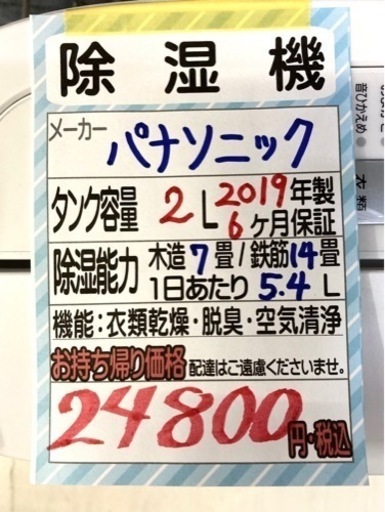 除湿機
メーカー パナソニック
タンク容量 2L 2019年製
6ヶ月保証
除湿能力 木造7畳/鉄筋14畳
1日あたり 5.4L
機能:衣類乾燥・脱臭・空気清浄
お持ち帰り価格 配達はご遠慮くださいませ。
24800円・税込
音ひかえめ
衣類